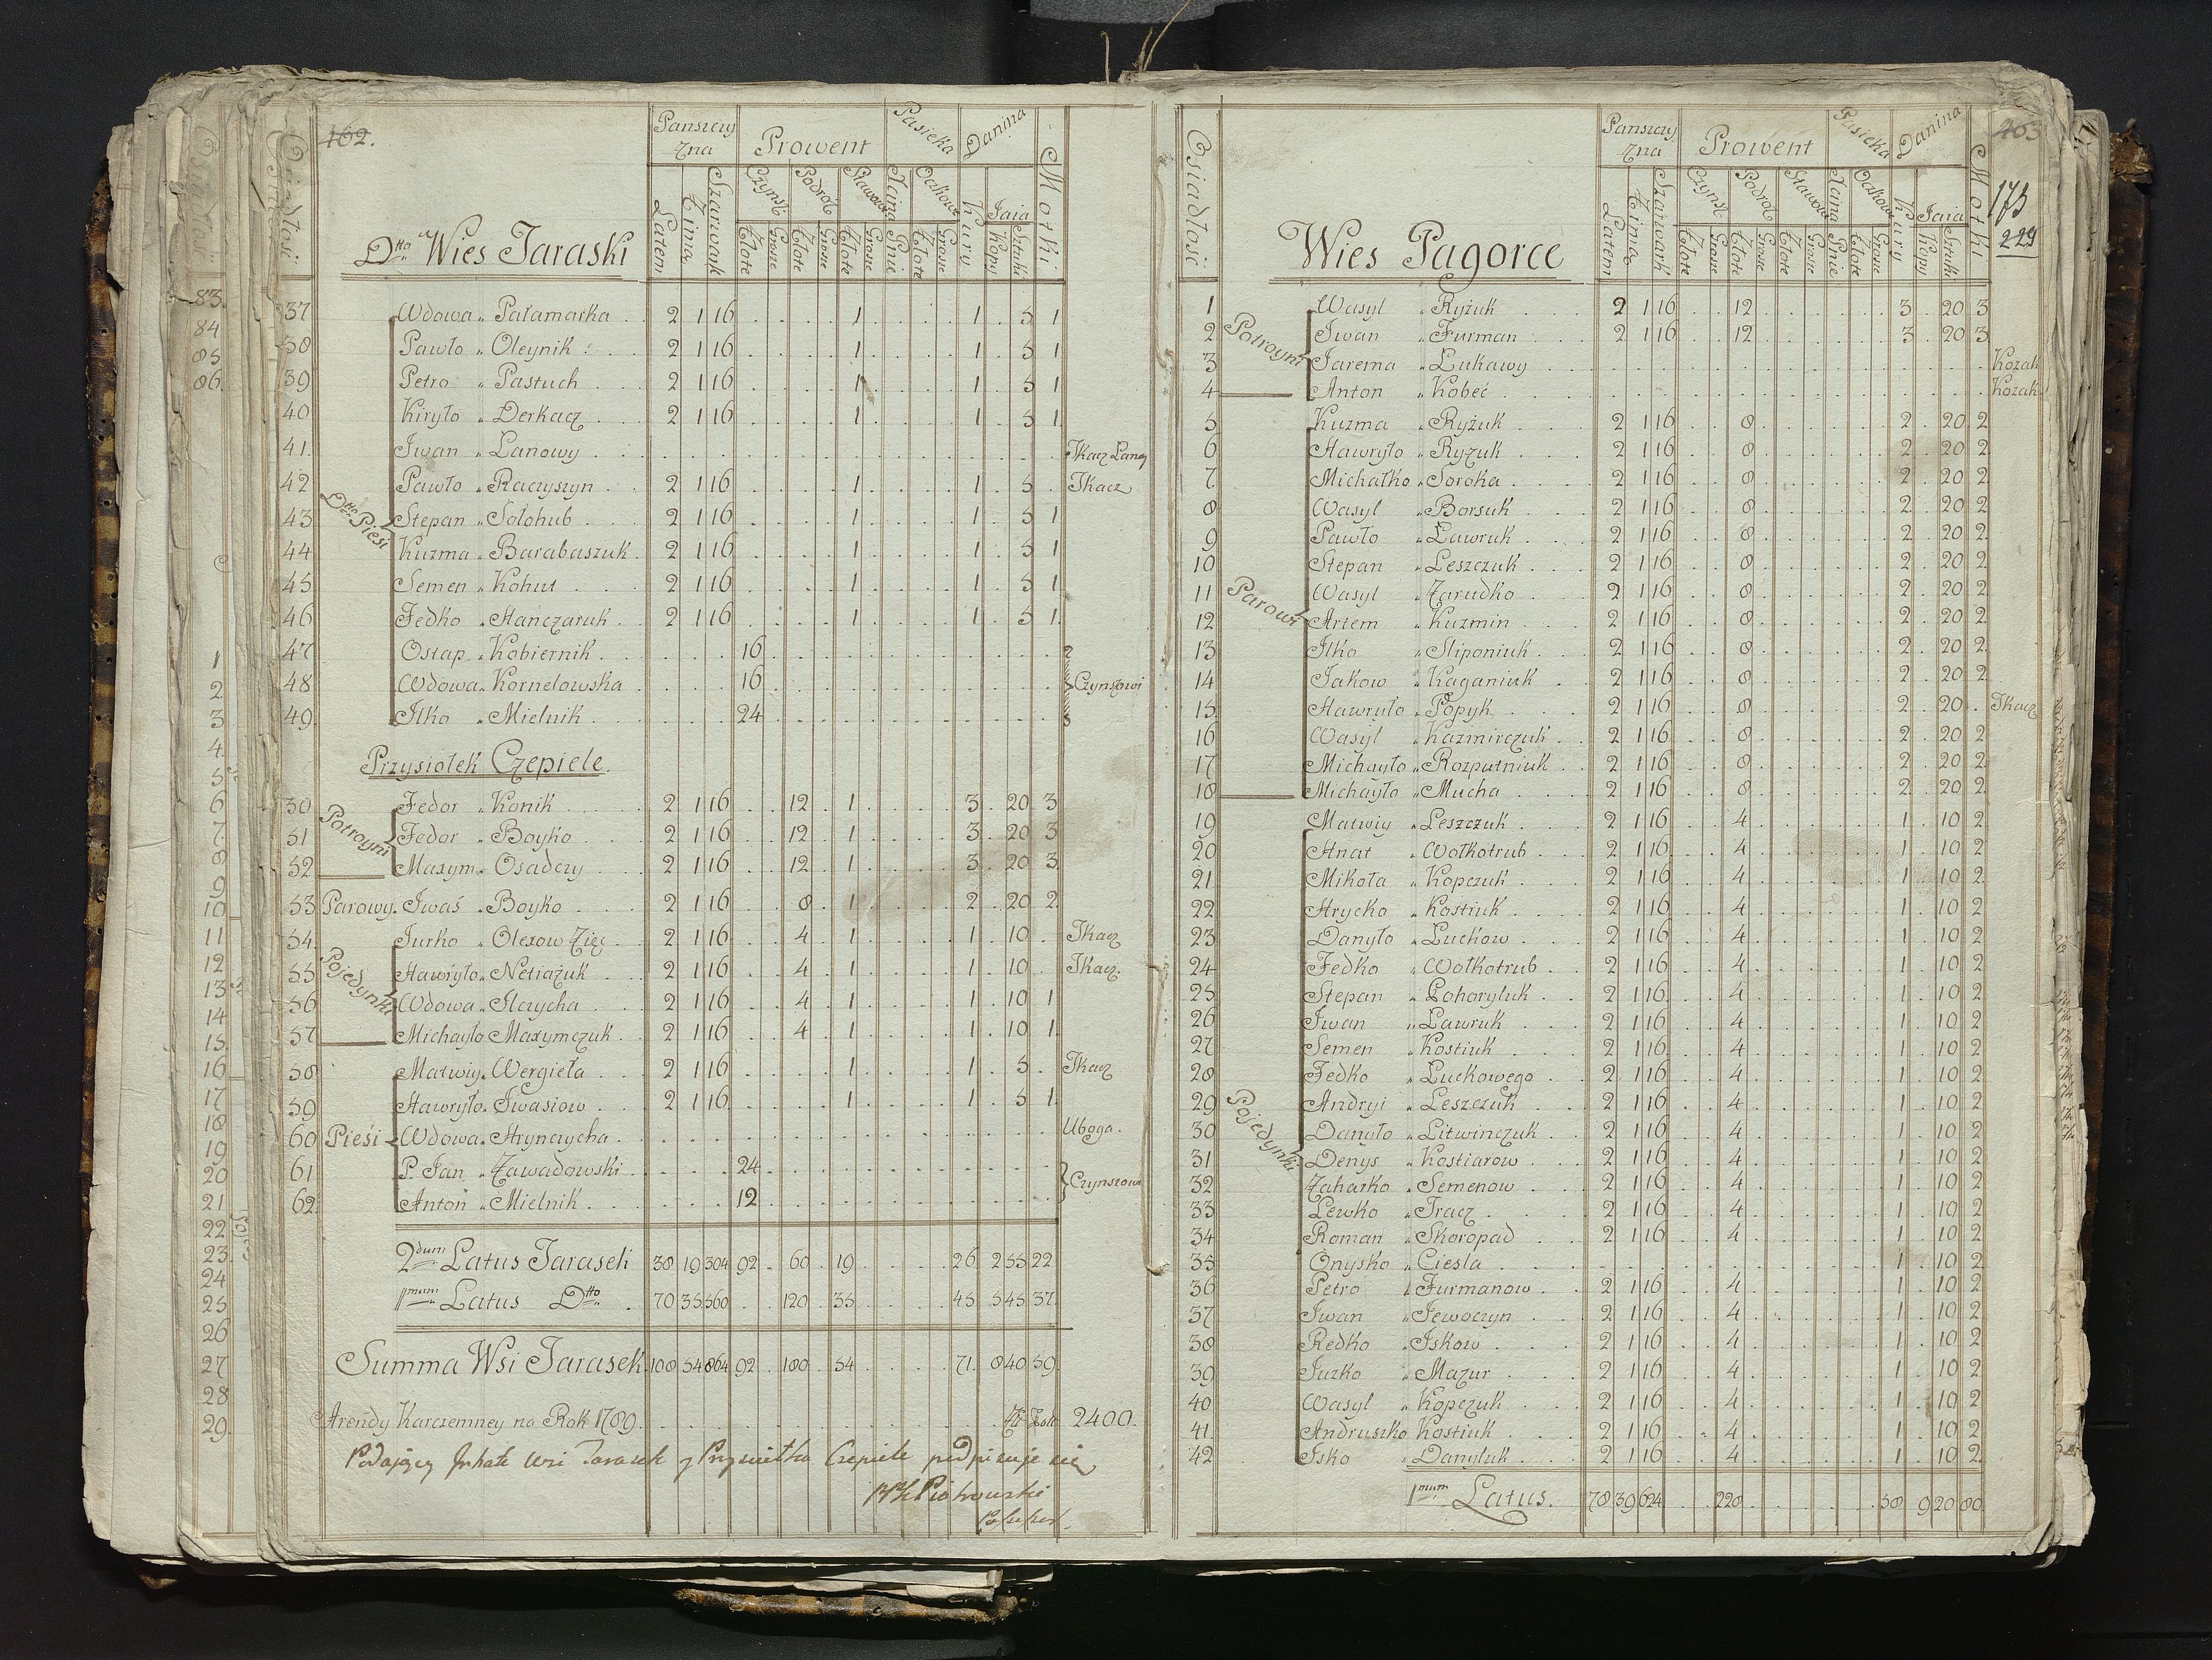 462.
Osiadłość
Panszczyzna
Prowent
Pasieka
Danina
Motki
Latem
Zimą
Szarwark
Czynsz
Podróż
Stawowe
Oczkowe
Kury
Jaia
Złote
Grosze
Złote
Grosze
Złote
Grosze
Pnie
Złote
Grosze
Kopy
Sztuki
Dtto Wies Taraski
37 Wdowa „ Pałamarka . 2 1 16 1 1 5 1
38 Pawło „ Oleynik . 2 1 16 1 1 5 1
39 Petro „ Pastuch . 2 1 16 1 1 5 1
40 Kiryło „ Derkacz . 2 1 16 1 1 5 1
41. Iwan „ Lanowy . Tkacz Lanoy
42 Pawło „ Raczyszyn . 2 1 16 1 1 5 . Tkacz
Dtto Piesi
43 Stepan „ Sołohub . 2 1 16 1 1 5 1
44 Kuzma „ Barabaszuk . 2 1 16 1 1 5 1
45 Semen „ Kohut . 2 1 16 1 1 5 1
46 Fedko „ Hanczaruk . 2 1 16 1 1 5 1
47 Ostap „ Kobiernik . 16
48 Wdowa „ Kornelowska . 16 Czynszowi
49 Ilko „ Mielnik . 24
Przysiołek Czepiele.
50 Fedor „ Konik 2 1 16 12 1 3 20 3
Potroyni
51 Fedor „ Boyko 2 1 16 12 1 3 20 3
52 Maxym „ Osadczy 2 1 16 12 1 3 20 3
53 Parowy. Iwaś „ Boyko 2 1 16 8 1 2 20 2
54 Jurko „ Olexow Zięć 2 1 16 4 1 1 10 . Tkacz
Pojedynki
55 Hawryło „ Netiażuk 2 1 16 4 1 1 10 Tkacz.
56 Wdowa „ Ilczycha 2 1 16 4 1 1 10 1
57 Michayło Maxymczuk 2 1 16 4 1 1 10 1
58 Matwiy „ Wergieła 2 1 16 1 1 5 . Tkacz
59 Hawryło „ Iwasiow 2 1 16 1 1 5 1
60 Piesi Wdowa „ Hrynczycha . Uboga.
61 P. Jan „ Zawadowski . 24
62 Anton „ Mielnik . 12 Czynszowi
2dum Latus Tarasek 38 19 304 92 60 19 26 255 22
1mum Latus Dtto 70 35 560 120 35 45 545 37
Summa Wsi Tarasek 108 54 864 92 180 54 71 840 59
Arendy Karczemney na Rok 1789 . 2400.
podpisuje się
Piotrowski
403
173
229
Osiadłość
Panszczyzna
Prowent
Pasieka
Danina
Motki
Latem
Zimą
Szarwark
Czynsz
Podróż
Stawowe
Oczkowe
Kury
Jaia
Złote
Grosze
Złote
Grosze
Złote
Grosze
Pnie
Złote
Grosze
Kopy
Sztuki
Wies Pagorce
1 Wasyl „ Ryżuk . 2 1 16 12 3 20 3
Potroyni
2 Iwan „ Furman . 2 1 16 12 3 20 3
3 Jarema „ Łukawy . Kozak
4 Anton „ Kobeć . Kozak
5 Kuzma „ Ryżuk 2 1 16 8 2 20 2
6 Hawryło „ Ryżuk 2 1 16 8 2 20 2
7 Michałko „ Soroka 2 1 16 8 2 20 2
8 Wasyl „ Borsuk 2 1 16 8 2 20 2
9 Pawło „ Ławruk 2 1 16 8 2 20 2
10 Stepan „ Leszczuk 2 1 16 8 2 20 2
Parowi
11 Wasyl „ Zarudko 2 1 16 8 2 20 2
12 Artem „ Kuzmin 2 1 16 8 2 20 2
13 Ilko „ Sliponiuk 2 1 16 8 2 20 2
14 Jakow „ Kaganiuk 2 1 16 8 2 20 2
15 Hawryło „ Popyk 2 1 16 8 2 20 . Tkacz
16 Wasyl „ Kazmirczuk 2 1 16 8 2 20 2
17 Michayło „ Rozputniuk 2 1 16 8 2 20 2
18 Michayło „ Mucha 2 1 16 8 2 20 2
19 Matwiy „ Leszczuk 2 1 16 4 1 10 2
20 Hnat „ Wołkotrub 2 1 16 4 1 10 2
21 Mikoła „ Kopczuk 2 1 16 4 1 10 2
22 Hrycko „ Kostiuk 2 1 16 4 1 10 2
23 Danyło „ Łuckow 2 1 16 4 1 10 2
24 Fedko „ Wołkotrub 2 1 16 4 1 10 2
25 Stepan „ Pohoryluk 2 1 16 4 1 10 2
26 Iwan „ Ławruk 2 1 16 4 1 10 2
27 Semen „ Kostiuk 2 1 16 4 1 10 2
28 Fedko „ Łuckowego 2 1 16 4 1 10 2
Pojedynki
29 Andryi „ Leszczuk 2 1 16 4 1 10 2
30 Danyło „ Litwinczuk 2 1 16 4 1 10 2
31 Denys „ Kostiarow 2 1 16 4 1 10 2
32 Zaharko „ Semenow 2 1 16 4 1 10 2
33 Lewko „ Tracz 2 1 16 4 1 10 2
34 Roman „ Skoropad 2 1 16 4 1 10 2
35 Onysko „ Ciesla . 1 10 2
36 Petro „ Furmanow 2 1 16 4 1 10 2
37 Iwan „ Jewoczyn 2 1 16 4 1 10 2
38 Redko „ Iskow 2 1 16 4 1 10 2
39 Jurko „ Mazur 2 1 16 4 1 10 2
40 Wasyl „ Kopczuk 2 1 16 4 1 10 2
41. Andruszko Kostiuk 2 1 16 4 1 10 2
42 Isko „ Danyluk 2 1 16 4 1 10 2
1mum Latus. 78 39 624 228 58 920 80